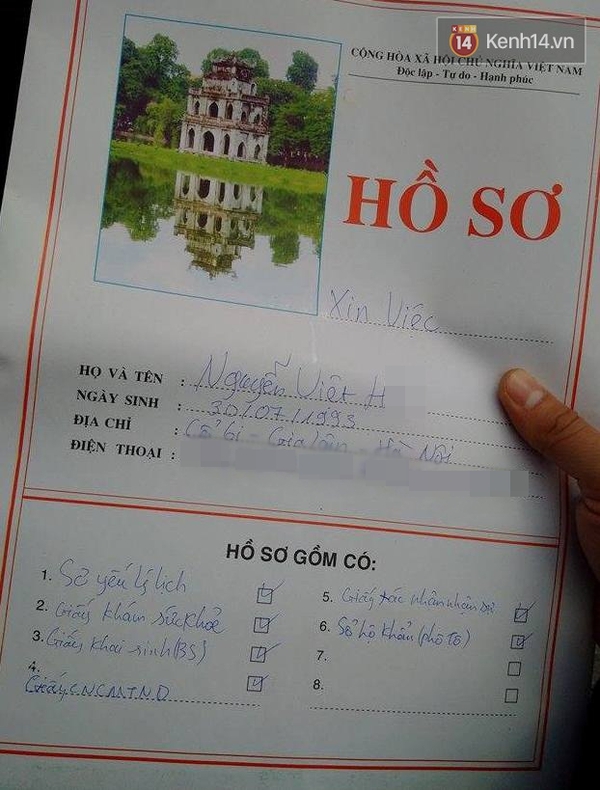 KENH 14 Kenh14.vn
CỘNG HÒA XÃ HỘI CHỦ NGHĨA VIỆT NAM
Độc lập - Tự do - Hạnh phúc
HỒ SƠ
Xin Việc
HỌ VÀ TÊN : Nguyễn Việt H
NGÀY SINH : 30/07/1993
ĐỊA CHỈ : Cổ bi - Gia lâm - Hà Nội
ĐIỆN THOẠI :
HỒ SƠ GỒM CÓ:
1. Sơ yếu lý lịch
2. Giấy khám sức khỏe
3. Giấy khai sinh (BS)
4. Giấy C.N.CMT.N.D
5. Giấy xác nhận nhân sự
6. Sổ hộ khẩu (phô tô)
7.
8.